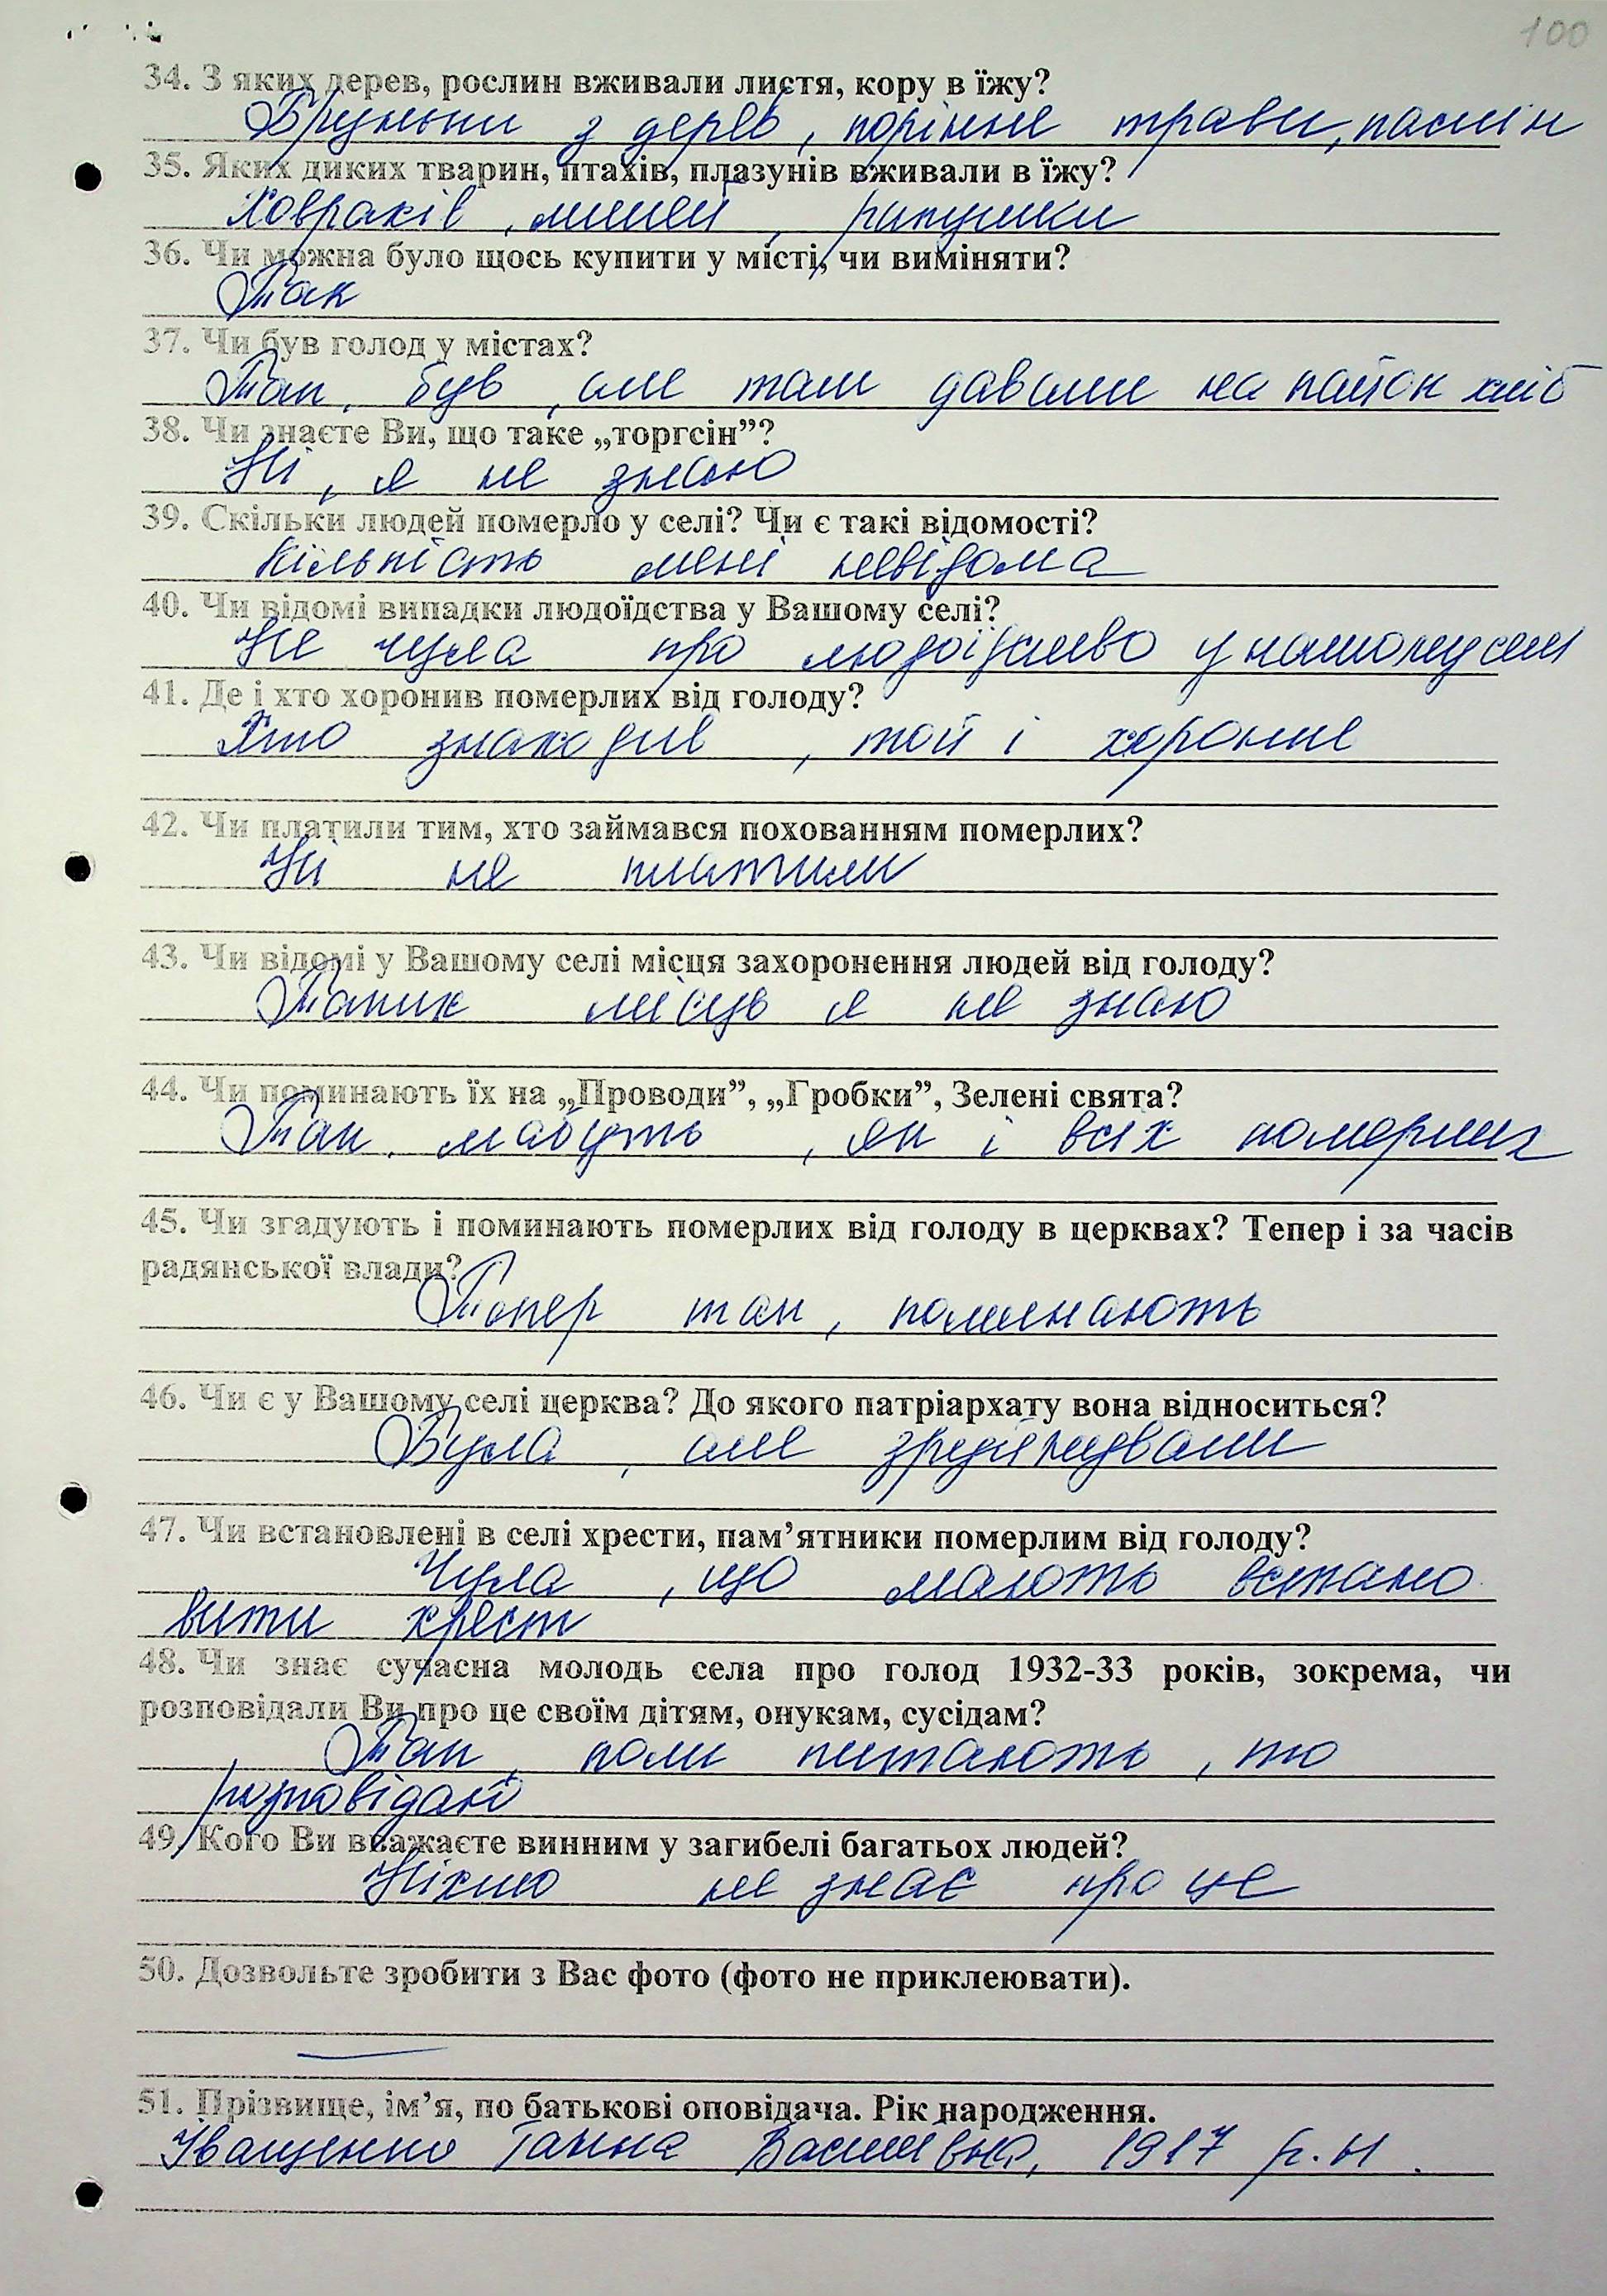 100
34. З яких дерев, рослин вживали листя, кору в їжу?
Бруньки з дерев, коріння трави, паслін
35. Яких диких тварин, птахів, плазунів вживали в їжу?
Ховрахів, мишей, рапушки
36. Чи можна було щось купити у місті, чи виміняти?
Так
37. Чи був голод у містах?
Так, був, але там давали на пайок хліб
38. Чи знаєте Ви, що таке „торгсін”?
Ні, я не знаю
39. Скільки людей померло у селі? Чи є такі відомості?
Кількість мені невідома
40. Чи відомі випадки людоїдства у Вашому селі?
Не чула про людоїдство у нашому селі
41. Де і хто хоронив померлих від голоду?
Хто знаходив, той і хоронив
42. Чи платили тим, хто займався похованням померлих?
Ні не платили
43. Чи відомі у Вашому селі місця захоронення людей від голоду?
Таких місць я не знаю
44. Чи поминають їх на „Проводи”, „Гробки”, Зелені свята?
Так, мабуть, як і всіх померлих
45. Чи згадують і поминають померлих від голоду в церквах? Тепер і за часів
радянської влади?
Тепер так, поминають
46. Чи є у Вашому селі церква? До якого патріархату вона відноситься?
Була, але зруйнували
47. Чи встановлені в селі хрести, пам’ятники померлим від голоду?
Чула, що мають встано
вити хрест
48. Чи знає сучасна молодь села про голод 1932-33 років, зокрема, чи
розповідали Ви про це своїм дітям, онукам, сусідам?
Так, коли питають, то
розповідаю
49. Кого Ви вважаєте винним у загибелі багатьох людей?
Ніхто не знає про це
50. Дозвольте зробити з Вас фото (фото не приклеювати).
51. Прізвище, ім’я, по батькові оповідача. Рік народження.
Іващенко Ганна Василівна, 1917 р.н.